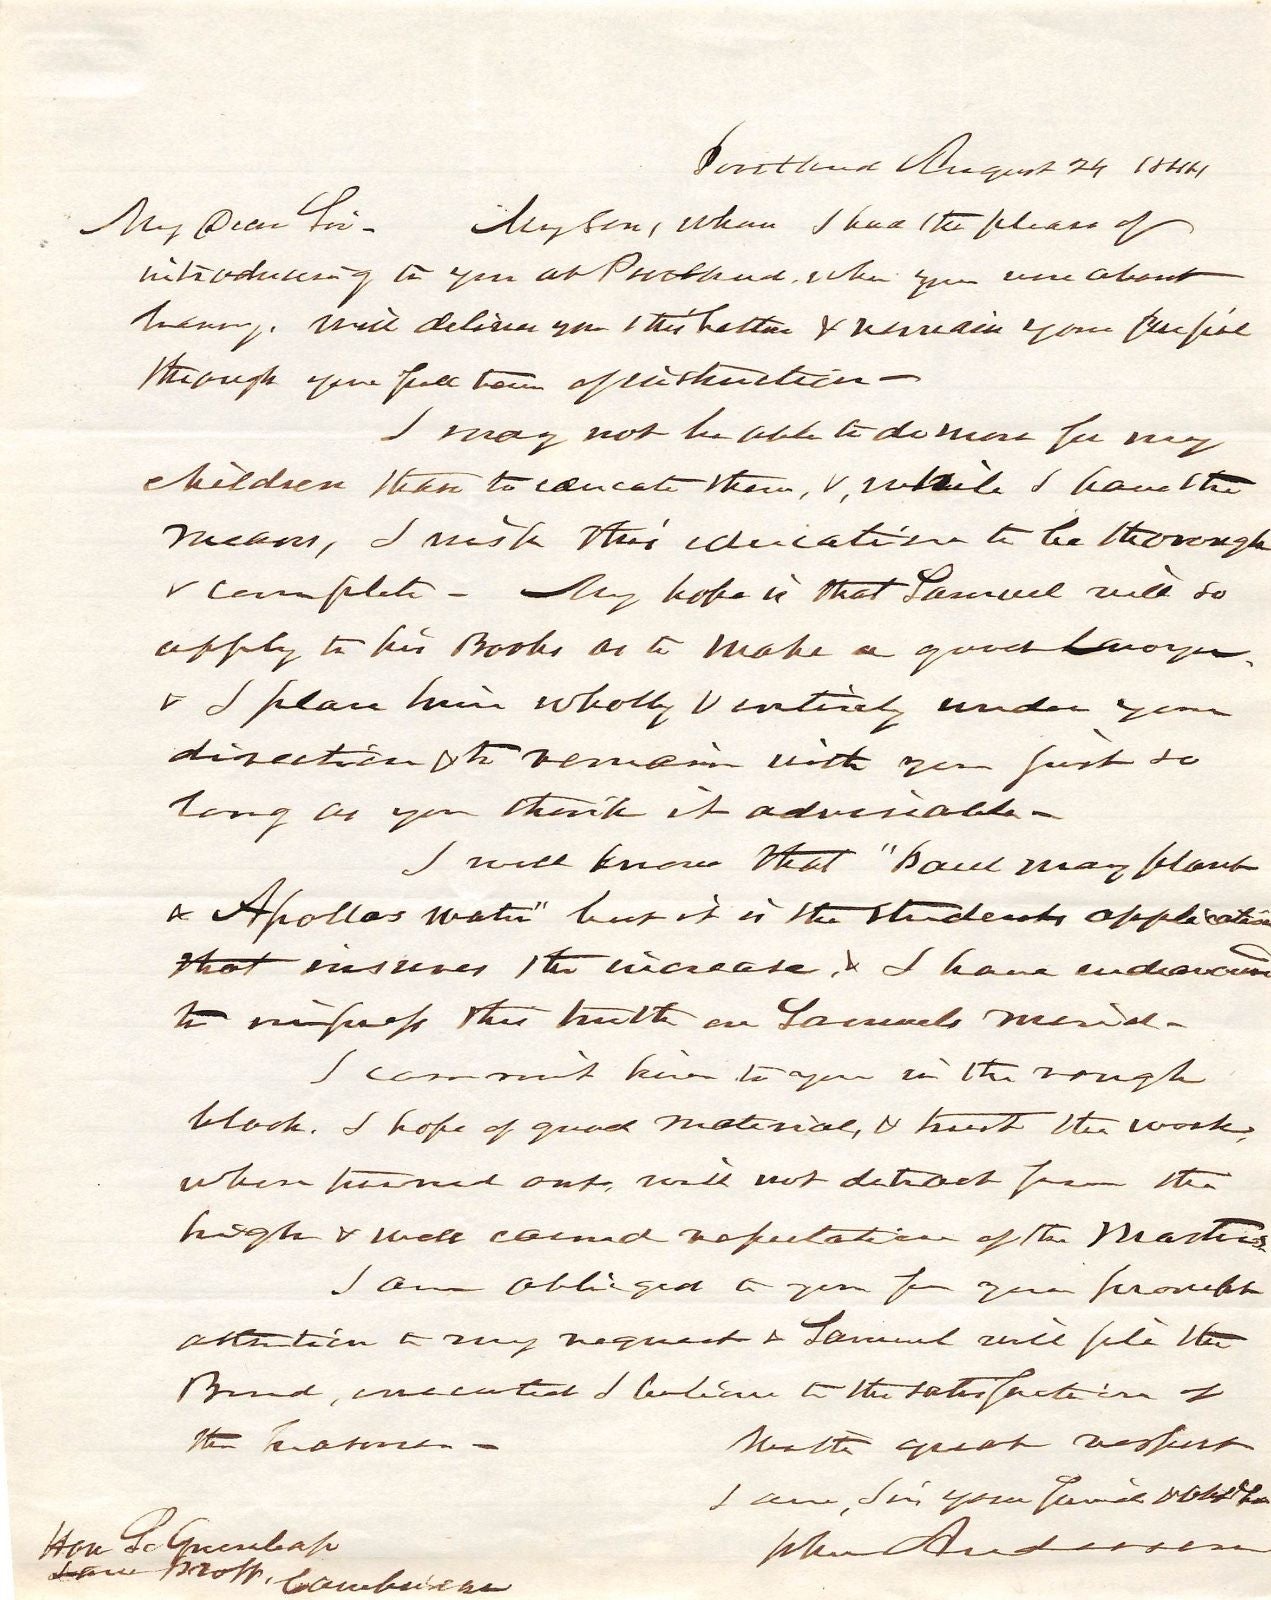 Portland August 24 1844
My Dear Sir - My Son, whom I had the pleasure of
introducing to you at Portland, when you were about
leaving, will deliver you this letter & remain your pupil
through your full term of instruction -
I may not be able to do more for my
children than to educate them, &, while I have the
means, I wish this education to be thorough
& complete - My hope is that Samuel will so
apply to his Books as to make a good Lawyer,
& I place him wholly & entirely under your
direction & to remain with you just so
long as you think it advisable -
I well know that "Paul may plant
& Apollos water" but it is the students application
that insures the increase, & I have endeavoured
to impress this truth on Samuels mind -
I commit him to you in the rough
block. I hope of good material, & trust the work,
when turned out, will not detract from the
high & well earned reputation of the Masters.
I am obliged to you for your prompt
attention to my request & Samuel will file the
Bond, executed I believe to the satisfaction of
the Treasurer -
With great respect
I am, Sir your friend & Obt St
John Anderson
Hon S. Greenleaf
Law Proff. Cambridge